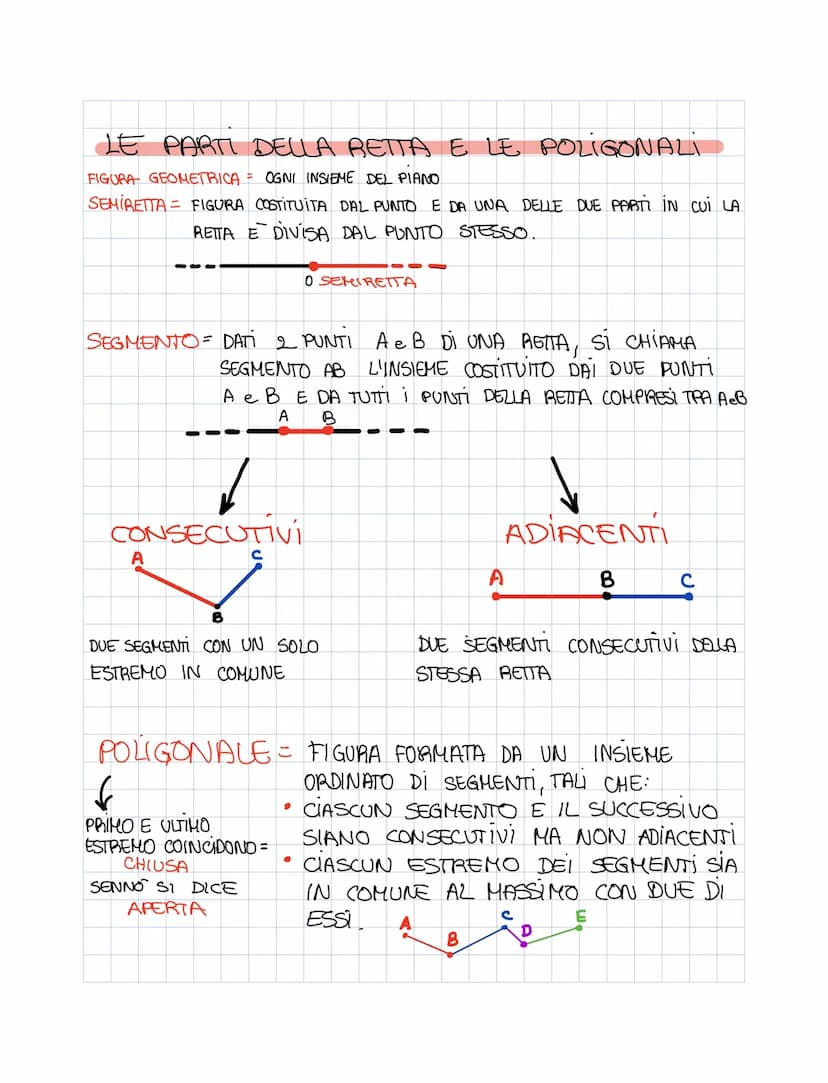 LE PARTI DELLA RETTA E LE POLIGONALI
FIGURA GEOMETRICA = OGNI INSIEME DEL PIANO
SEMIRETTA = FIGURA COSTITUITA DAL PUNTO E DA UNA DELLE DUE PARTI IN CUI LA
RETTA E DIVISA DAL PUNTO STESSO.
O SEMIRETTA
SEGMENTO = DATI 2 PUNTI A e B DI UNA RETTA, SI CHIAMA
SEGMENTO AB L'INSIEME COSTITUITO DAI DUE PUNTI
A e B E DA TUTTI I PUNTI DELLA RETTA COMPRESI TRA A e B
A B
CONSECUTIVI
A C
B
DUE SEGMENTI CON UN SOLO
ESTREMO IN COMUNE
ADIACENTI
A B C
DUE SEGMENTI CONSECUTIVI DELLA
STESSA RETTA
POLIGONALE = FIGURA FORMATA DA UN INSIEME
ORDINATO DI SEGMENTI, TALI CHE:
• CIASCUN SEGMENTO E IL SUCCESSIVO
SIANO CONSECUTIVI MA NON ADIACENTI
• CIASCUN ESTREMO DEI SEGMENTI SIA
IN COMUNE AL MASSIMO CON DUE DI
ESSI.
PRIMO E ULTIMO
ESTREMO COINCIDONO =
CHIUSA
SENNÒ SI DICE
APERTA
A B C D E